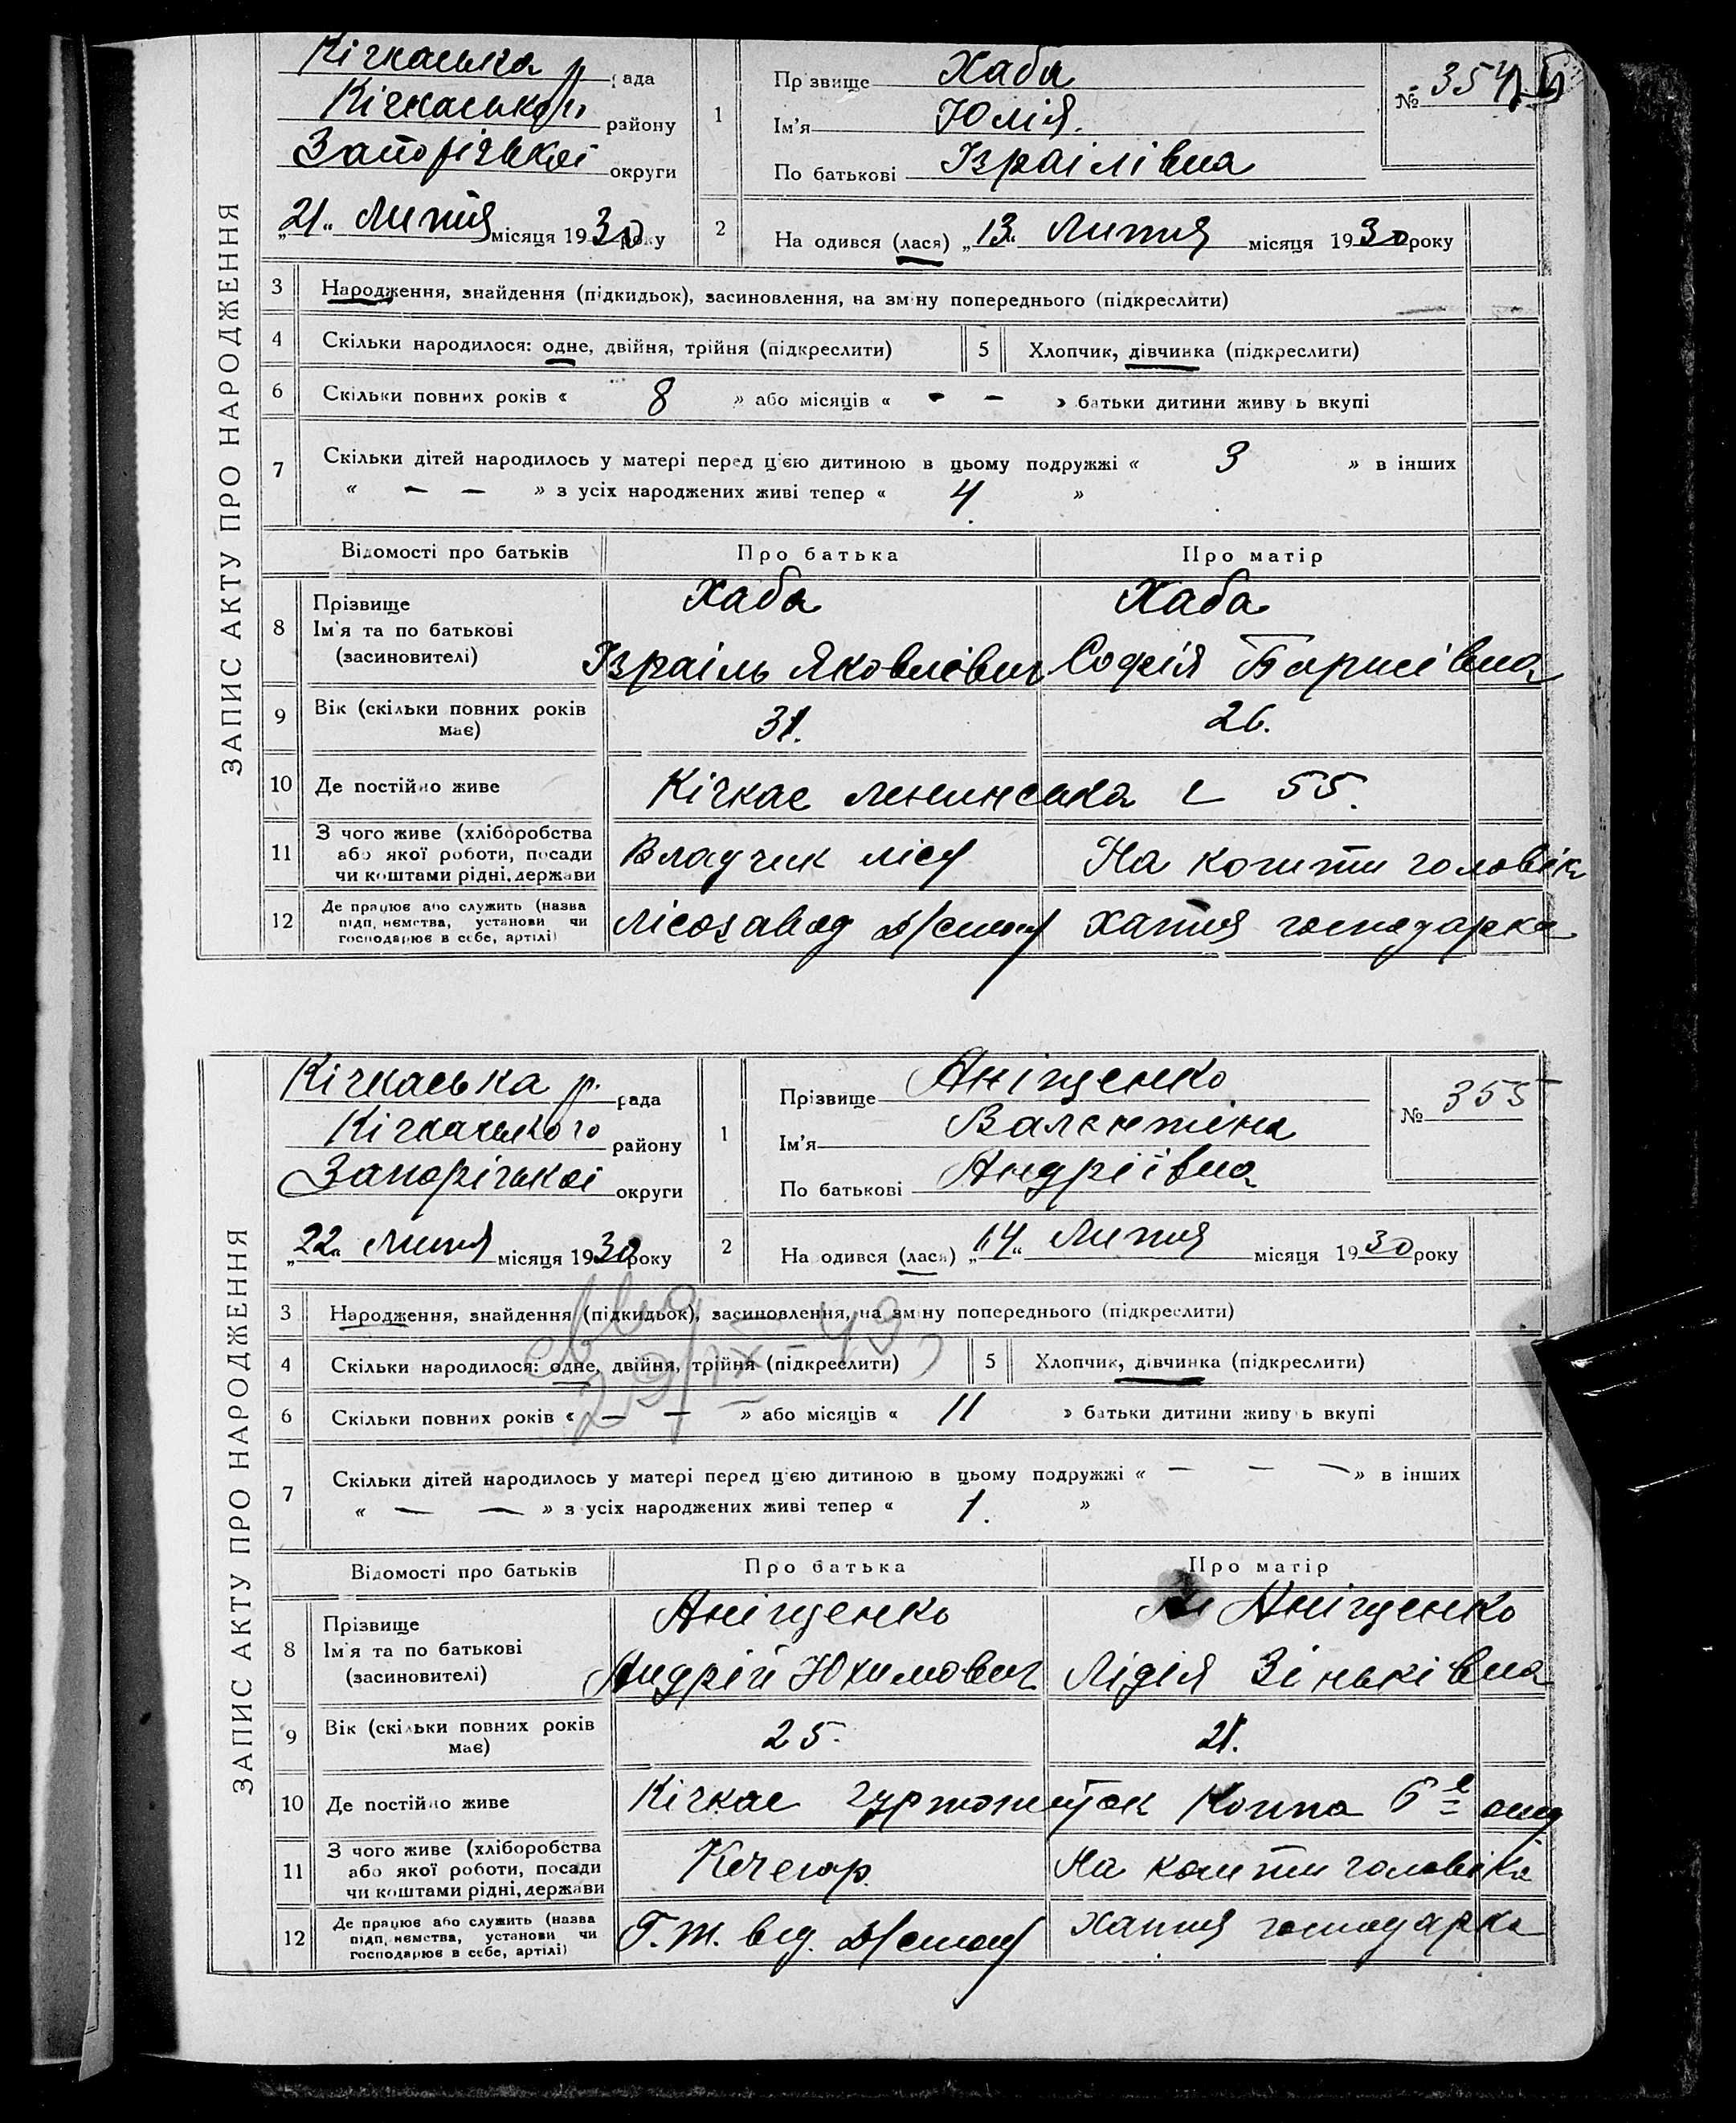 ЗАПИС АКТУ ПРО НАРОДЖЕННЯ
Кічкаська р рада
Кічкаського району
Запорізької округи
„21“ Липня місяця 1930 року
1
Прізвище Хаба
Ім'я Юлія.
По батькові Ізраілівна
№ 354
2
На одився (лася) „13“ Липня місяця 1930 року
3 Народження, знайдення (підкидьок), засиновлення, на зміну попереднього (підкреслити)
4 Скільки народилося: одне, двійня, трійня (підкреслити) 5 Хлопчик, дівчинка (підкреслити)
6 Скільки повних років « 8 » або місяців « - - » батьки дитини живуть вкупі
7 Скільки дітей народилось у матері перед цією дитиною в цьому подружжі « 3 » в інших
« - - » з усіх народжених живі тепер « 4. »
Відомості про батьків Про батька Про матір
8 Прізвище Ім'я та по батькові (засиновителі)
Хаба Хаба
Ізраіль Яковлєвич Софія Борисівна
9 Вік (скільки повних років має) 31. 26.
10 Де постійно живе Кічкас Ленинська 55.
11 З чого живе (хліборобства або якої роботи, посади чи коштами рідні, держави
На кошти чоловіка
12 Де працює або служить (назва підприємства, установи чи господарює в себе, артілі)
Лісозавод Д/стою хатня господарка
ЗАПИС АКТУ ПРО НАРОДЖЕННЯ
Кічкаська р. рада
Кічкаського району
Запорізької округи
„22“ Липня місяця 1930 року
1
Прізвище Аніщенко
Ім'я Валентина
По батькові Андріївна
№ 355
2
На одився (лася) „14“ Липня місяця 1930 року
3 Народження, знайдення (підкидьок), засиновлення, на зміну попереднього (підкреслити)
4 Скільки народилося: одне, двійня, трійня (підкреслити) 5 Хлопчик, дівчинка (підкреслити)
6 Скільки повних років « — — » або місяців « 11 » батьки дитини живуть вкупі
7 Скільки дітей народилось у матері перед цією дитиною в цьому подружжі « — — — » в інших
« — — » з усіх народжених живі тепер « 1. »
Відомості про батьків Про батька Про матір
8 Прізвище Ім'я та по батькові (засиновителі)
Аніщенко Аніщенко
Андрій Юхимович Лідія Зіньківна
9 Вік (скільки повних років має) 25. 21.
10 Де постійно живе Кічкас гуртожиток
11 З чого живе (хліборобства або якої роботи, посади чи коштами рідні, держави
Кочегар. На кошти чоловіка
12 Де працює або служить (назва підприємства, установи чи господарює в себе, артілі)
від. Д/стою хатня господарка